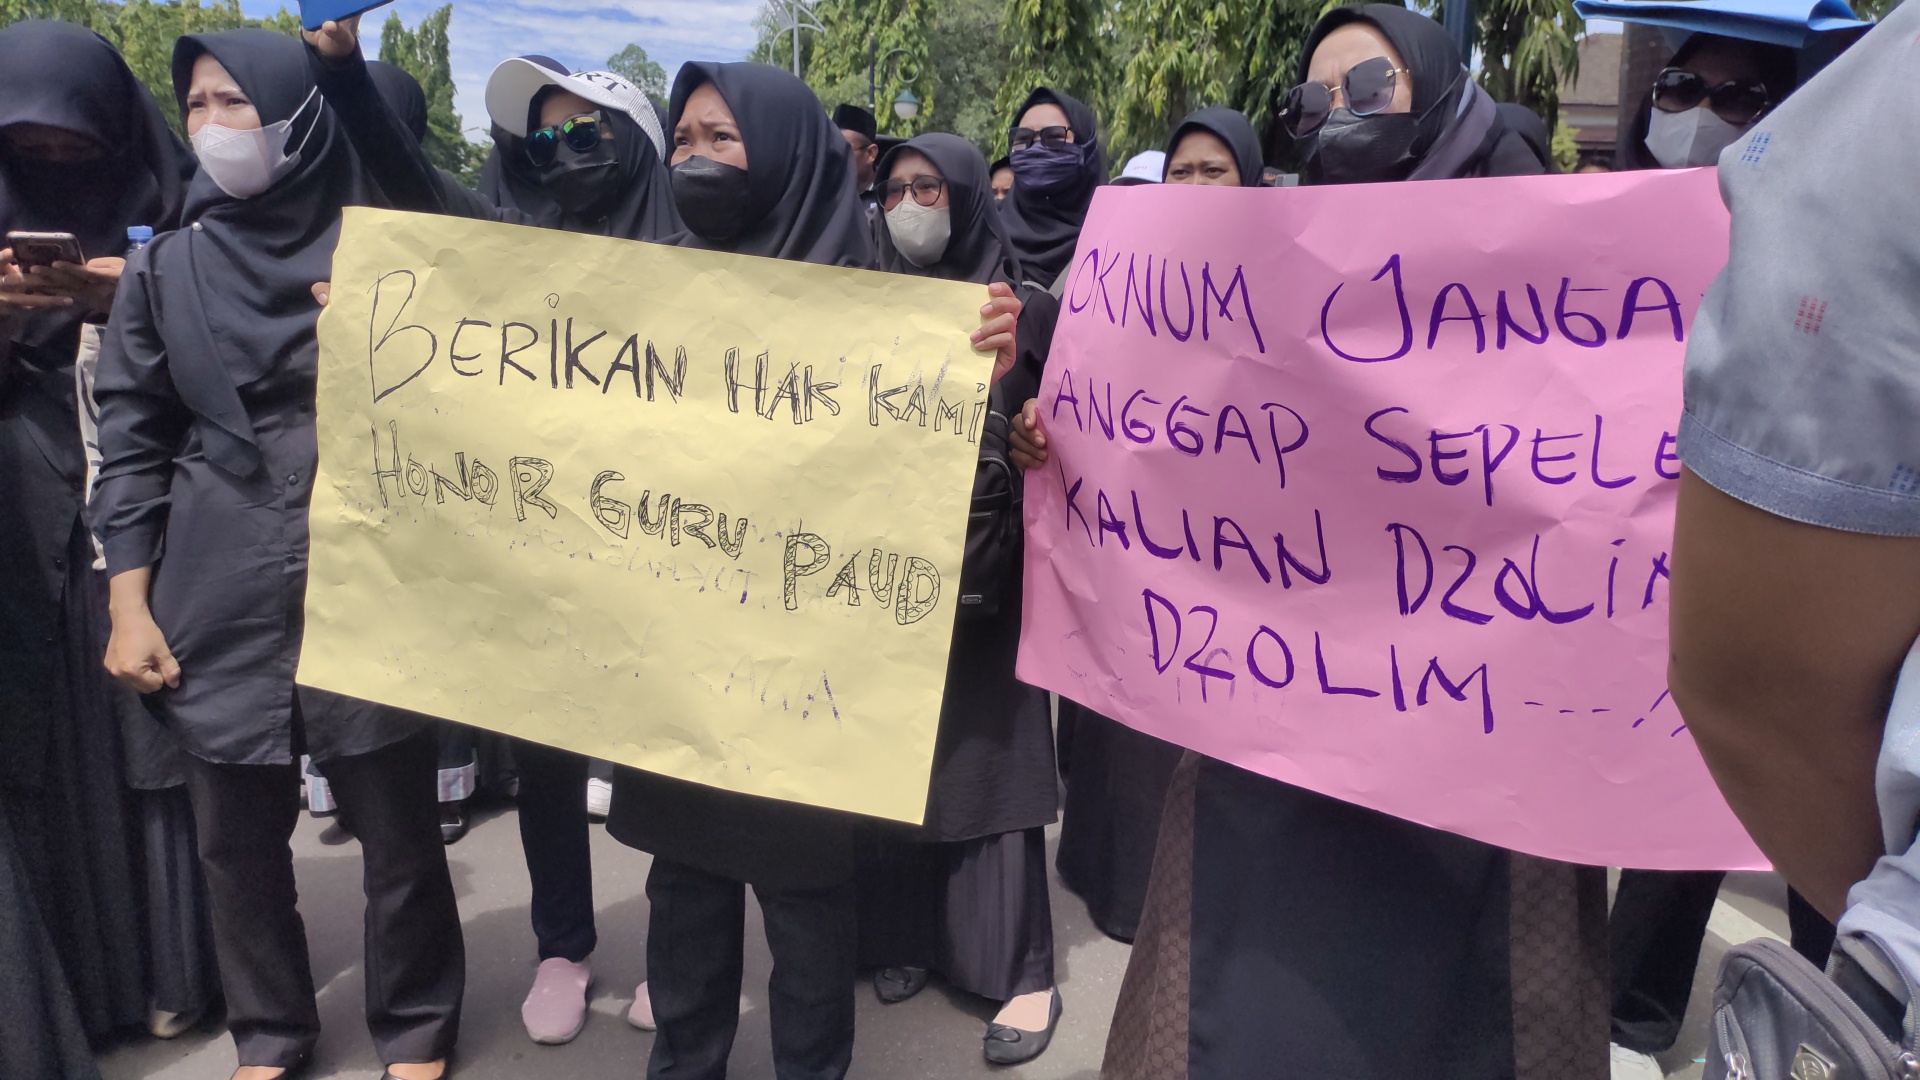 BERIKAN HAK KAMI
HONOR GURU PAUD
OKNUM JANGA
ANGGAP SEPELE
KALIAN DZOLIM
DZOLIM ----